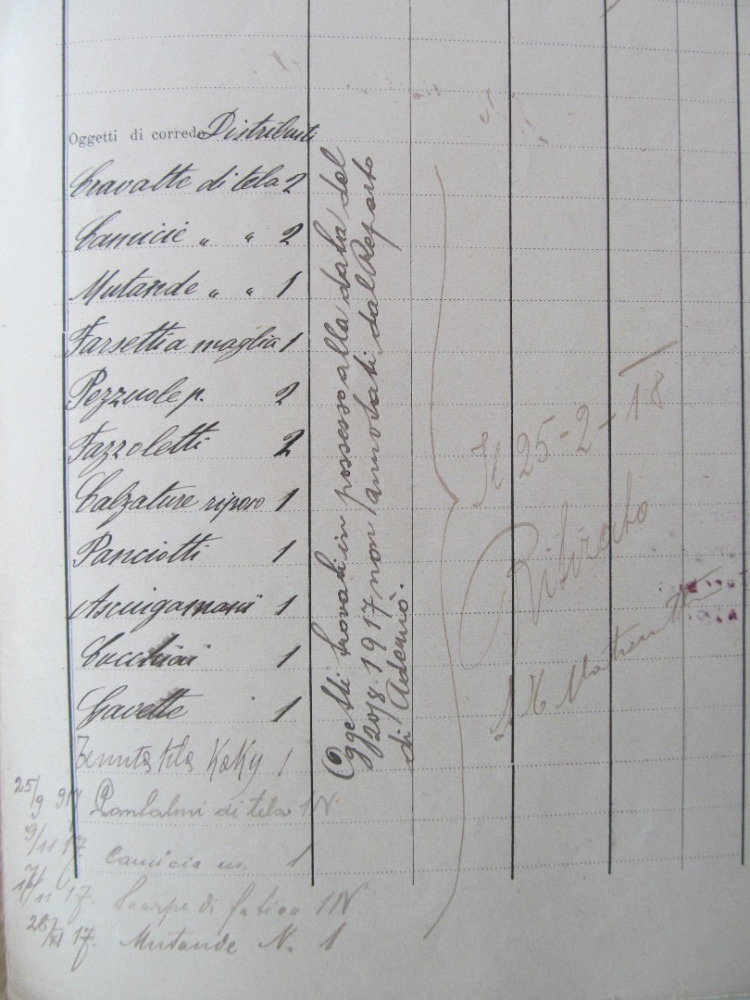 Oggetti di corredo Distribuiti
Cravatte di tela 2
Camicie " " 2
Mutande " " 1
Farsetti a maglia 1
Pezzuole p. 2
Fazzoletti 2
Calzature riposo 1
Panciotti 1
Asciugamani 1
Cucchiai 1
Gavette 1
Tenuta tela Kaky 1
25/9 917 Pantaloni di tela 1 N
9/11 17 Camicia 1
17/11 17. Scarpe di fatica 1 N
28/XI 17. Mutande N. 1
Oggetti trovati in possesso alla data del
20/8 1917 non annotati dal Reparto
di Adernò.
Il 25-2-18
Ritirato